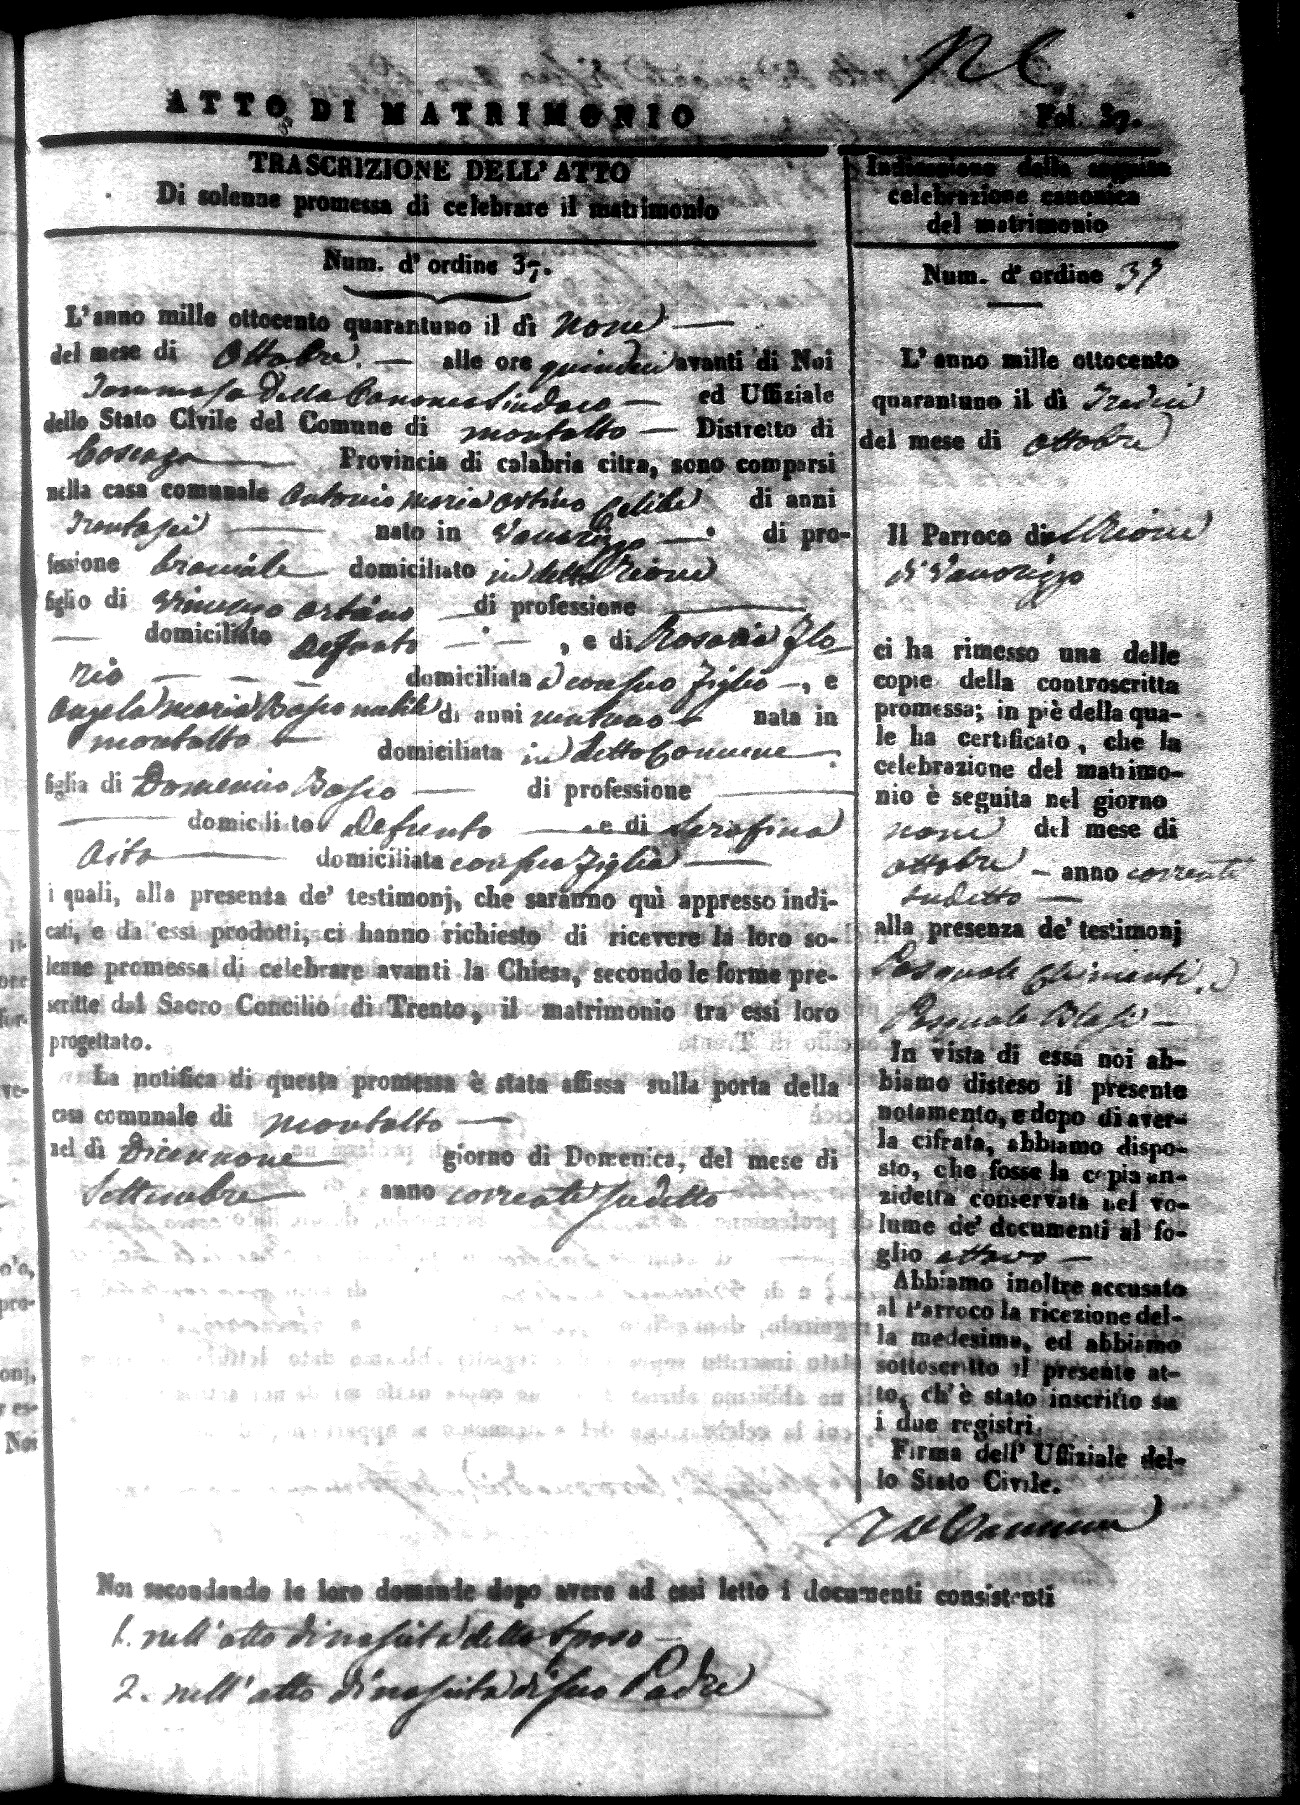 ATTO DI MATRIMONIO
Fol. 37.
TRASCRIZIONE DELL'ATTO
Di solenne promessa di celebrare il matrimonio
Num. d'ordine 37.
L'anno mille ottocento quarantuno il dì nove
del mese di Ottobre alle ore quindici avanti di Noi
Tommaso Della Canonea Sindaco ed Uffiziale
dello Stato Civile del Comune di montalto Distretto di
Cosenza Provincia di calabria citra, sono comparsi
nella casa comunale Antonio maria Celibe di anni
Trentasei nato in Vaccarizzo di pro-
fessione braciale domiciliato in detto Rione
figlio di di professione
domiciliato defunto , e di Rosaria Flo
rio domiciliata con suo figlio , e
Angela maria Basso nubile di anni ventuno nata in
montalto domiciliata in detto Comune
figlia di Domenico Basso di professione
domiciliato defunto e di Serafina
Aita domiciliata con sua figlia
i quali, alla presenza de' testimonj, che saranno quì appresso indi-
cati, e da essi prodotti, ci hanno richiesto di ricevere la loro so-
lenne promessa di celebrare avanti la Chiesa, secondo le forme pre-
scritte dal Sacro Concilio di Trento, il matrimonio tra essi loro
progettato.
La notifica di questa promessa è stata affissa sulla porta della
casa comunale di montalto
nel dì Dicennove giorno di Domenica, del mese di
Settembre anno corrente sudetto
Indicazione della seguita
celebrazione canonica
del matrimonio
Num. d'ordine 37
L'anno mille ottocento
quarantuno il dì Tredici
del mese di ottobre
Il Parroco di Rione
di Vaccarizzo
ci ha rimesso una delle
copie della controscritta
promessa; in piè della qua-
le ha certificato, che la
celebrazione del matrimo-
nio è seguita nel giorno
nove del mese di
ottobre anno corrente
sudetto
alla presenza de' testimonj
Pasquale Chimenti,
Pasquale Blasi
In vista di essa noi ab-
biamo disteso il presente
notamento, e dopo di aver-
la cifrata, abbiamo dispo-
sto, che fosse la copia an-
zidetta conservata nel vo-
lume de' documenti al fo-
glio ottavo
Abbiamo inoltre accusato
al Parroco la ricezione del-
la medesima, ed abbiamo
sottoscritto il presente at-
to, ch'è stato inscritto su
i due registri.
Firma dell' Uffiziale del-
lo Stato Civile.
Noi secondando le loro domande dopo avere ad essi letto i documenti consistenti
1. nell'atto di nascita dello sposo
2. nell'atto di nascita di suo Padre